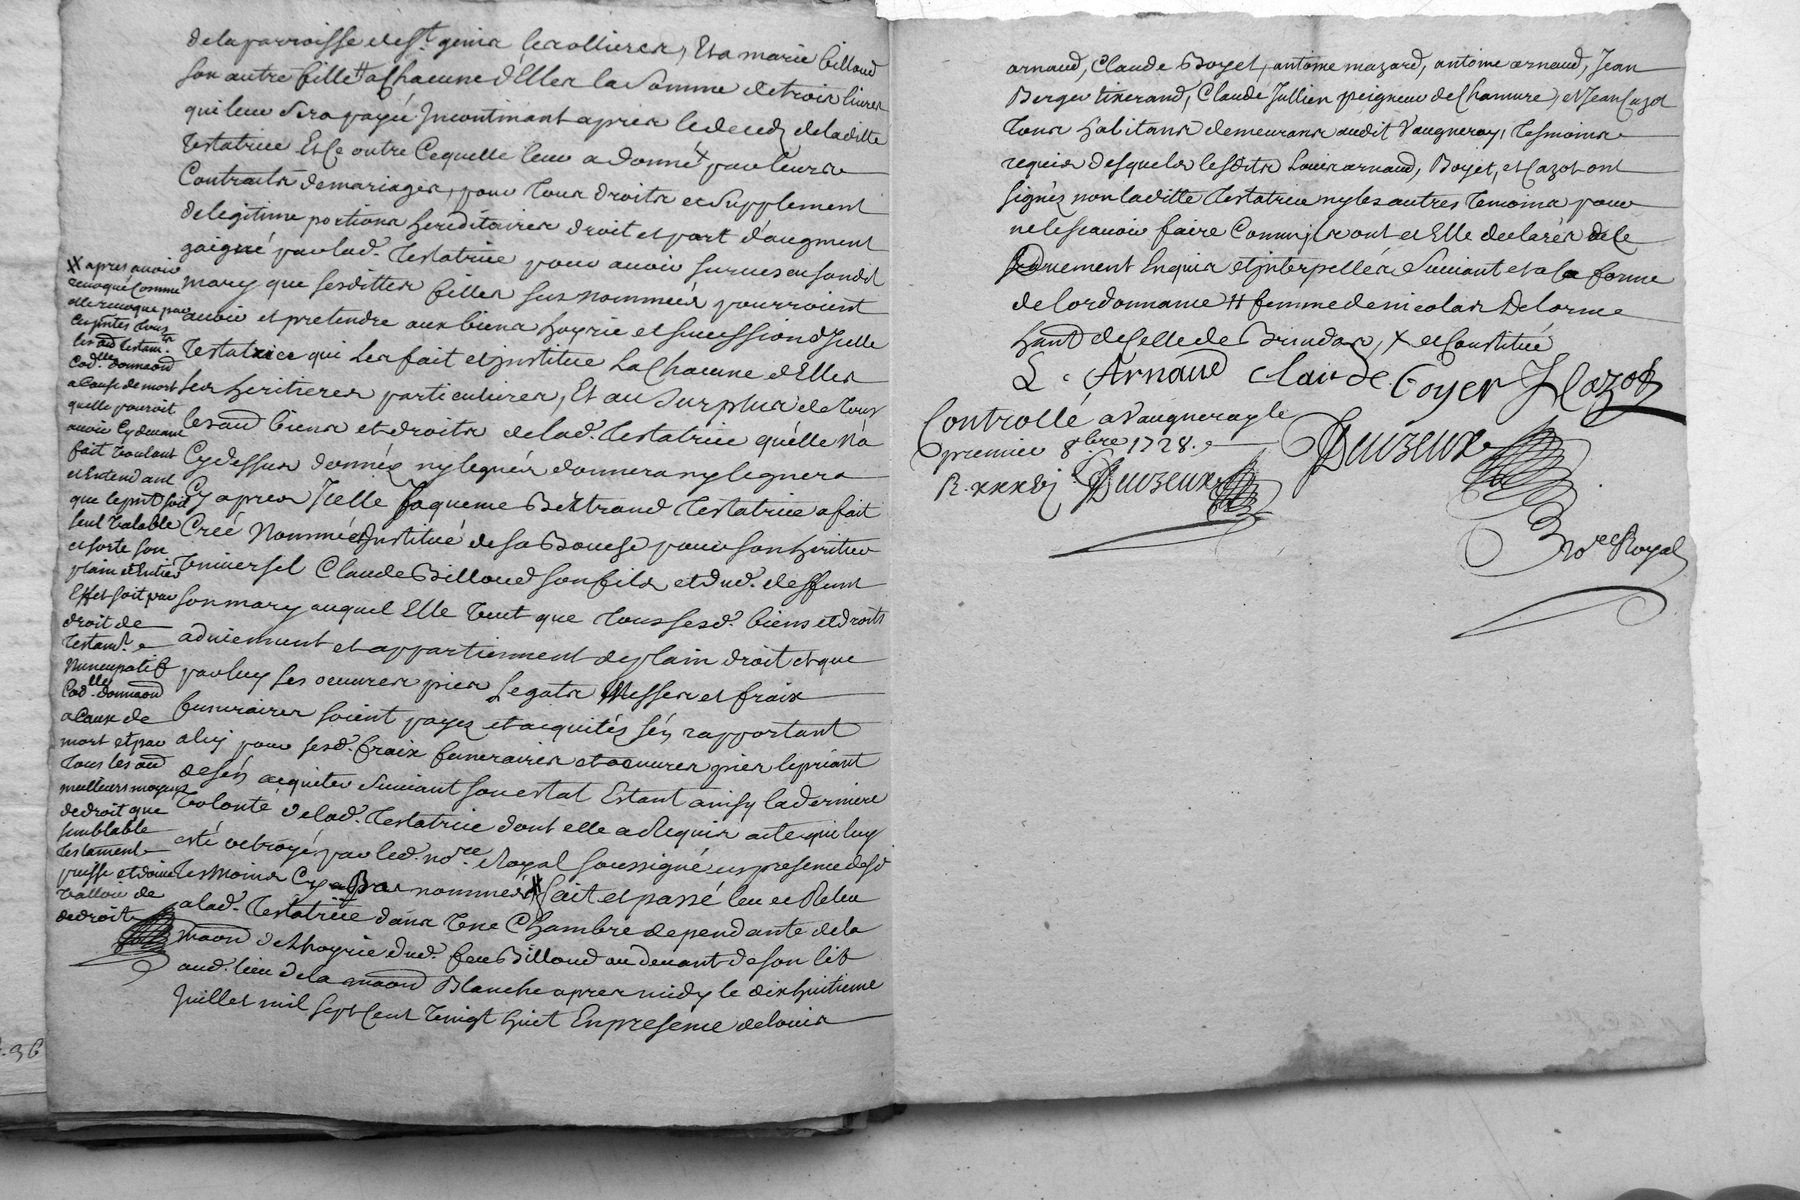 de la parroisse de st. genis les ollieres, Et a marie billoud
son autre fille # a Chacune d'Elles la Somme de trois livres
qui leur sera payé Incontinant apres le decedz de laditte
Testatrice Et Ce outre Cequelle leur a donné x par leurs
Contracts de mariages, pour tous droits et Supplement
de legitime portions hereditaires droit et part d'augment
gaigné par lad. Testatrice pour avoir survescu sondit
mary que sesdittes filles sus nommées pourroient
avoir et pretendre aux biens hoyrie et succession d'Icelle
Testatrice qui les fait et institue La Chacune d'Elles
ses heritieres particulieres, Et au Surplus de tous
les aud biens et droits de lad. Testatrice qu'elle n'a
Cy dessus donnés ny legués donnera ny leguera
Cy apres Icelle Jaqueme Bertrand Testatrice a fait
Créé Nommé et Institué de sa Bouche pour son heritier
Universel Claude Billoud son fils et dud. deffunt
son mary auquel Elle veut que tous sesd. biens et droits
adviennent et appartiennent de plain droit et que
par luy ses oeuvres pies Legats Messes et fraix
funeraires soient payez et acquités s'en rapportant
a luy pour sesd. fraix funeraires et oeuvres pies le priant
de s'en acquiter Suivant son estat Estant ainsy la derniere
volonté de lad. Testatrice dont elle a Requis acte qui luy
esté octroyé par led. nore. Royal soussigné en presence desd
tesmoins Cy a Bas nommés # fait et passé leu et Releu
a lad. Testatrice dans Une Chambre dependante de la
maon de Lhoyrie dud. feu Billoud au devant de son lit
aud. lieu de la maon Blanche apres midy le dixhuitieme
Juillet mil sept Cent vingt huit En presence de louis
# apres avoir
revoqué Comme
elle revoque par
Ces pntes tous
les aud testamts
Codlle donnaon
a Cause de mort
quelle pourroit
avoir Cy devant
fait voulant
et Entendant
que le pnt soit
seul valable
et sorte son
plain et Entier
Effet soit par
droit de
testamt.
Nuncupatif
Codlle donnaon
a Cause de
mort et par
tous les aud
meilleurs moyens
de droit que
semblable
testament
puisse et doive
valloir de
de droit
arnaud, Claude Boyet, antoine mazard, antoine arnaud, Jean
Berger tixerand, Claude Jullien peigneur de Chanure, et Jean Cazot
tous habitans demeurans audit Vaugneray, tesmoins
requis desquels lesdits Louis arnaud, Boyet, et Cazot ont
signéz non laditte Testatrice ny les autres temoins pour
ne le scavoir faire Comme ils ont et Elle declarés de le
deuement Enquis et interpellés Suivant et a la forme
de lordonnance # femme de nicolas Delorme
hant de Celle de Brindas, x et Constitué
L. Arnaud Claude Boyer J Cazot
Controllé a Vaugneray le
premier 8bre 1728.
R. xxxvj Duvzeux
Duvzeux
Nore Royal